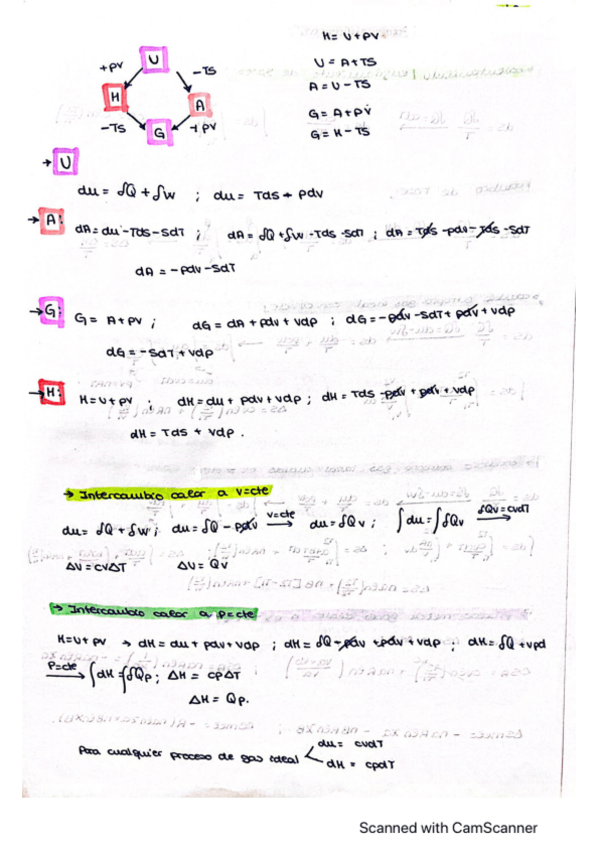 H = U + PV
U
+PV
-TS
U = A + TS
A = U - TS
H
A
G = A + PV
G = H - TS
-TS
G
+PV
→ U
du = δQ + δw ; du = Tds - pdv
→ A:
dA = du - Tds - SdT ; dA = δQ + δw - Tds - SdT ; dA = Tds - pdv - Tds - SdT
dA = -pdv - SdT
→ G:
G = A + PV ; dG = dA + pdv + vdp ; dG = -pdv - SdT + pdv + vdp
dG = -SdT + vdp
→ H:
H = U + PV ; dH = du + pdv + vdp ; dH = Tds - pdv + pdv + vdp
dH = Tds + vdp.
→ Intercambio calor a v=cte
du = δQ + δw ; du = δQ - pdv v=cte → du = δQv ; ∫du = ∫δQv δQv = cvdT →
ΔU = cvΔT ΔU = Qv
→ Intercambio calor a p=cte
H = U + PV → dH = du + pdv + vdp ; dH = δQ - pdv + pdv + vdp ; dH = δQ + vpd
P=cte → ∫dH = ∫δQp ; ΔH = cpΔT
ΔH = Qp.
Para cualquier proceso de gas ideal < du = cvdT
dH = cpdT
Scanned with CamScanner